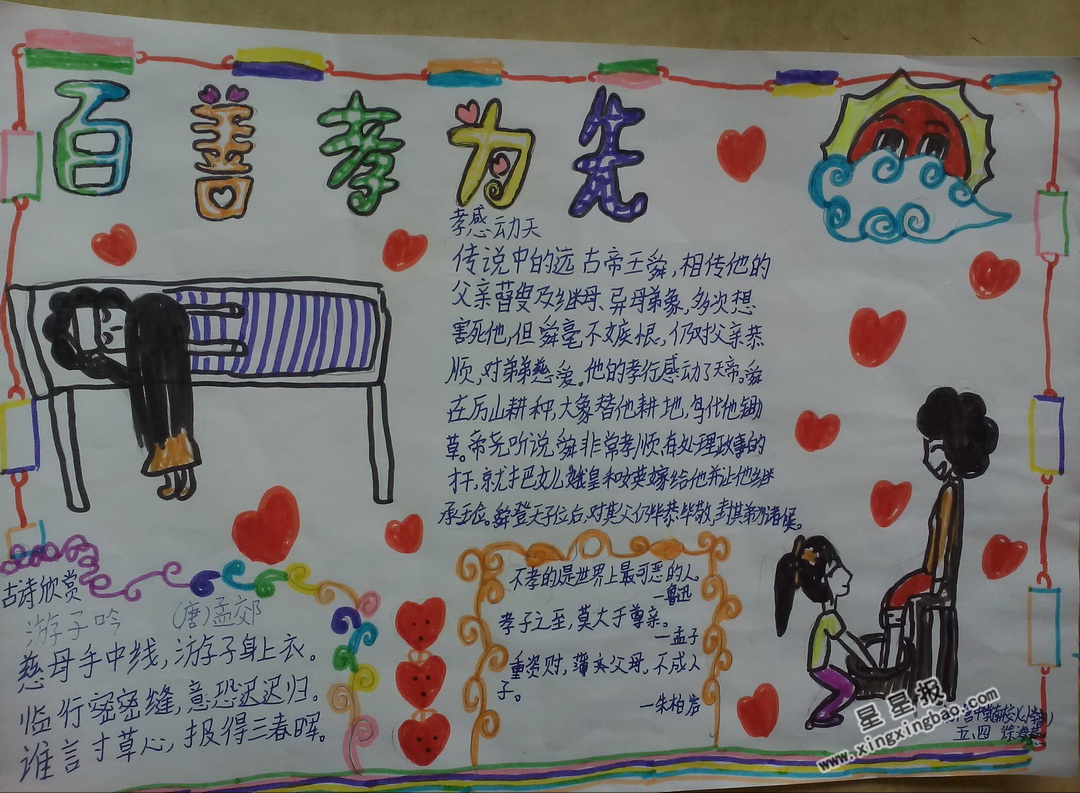 百善孝为先
孝感动天
传说中的远古帝王舜,相传他的
父亲瞽叟及继母、异母弟象,多次想
害死他,但舜毫不嫉恨,仍对父亲恭
顺,对弟弟慈爱。他的孝行感动了天帝。舜
在厉山耕种,大象替他耕地,鸟代他锄
草。帝尧听说舜非常孝顺,有处理政事的
才干,就把女儿娥皇和女英嫁给他并让他继
承王位。舜登天子位后,对其父仍毕恭毕敬,封其弟为诸候。
古诗欣赏
游子吟 (唐)孟郊
慈母手中线,游子身上衣。
临行密密缝,意恐迟迟归。
谁言寸草心,报得三春晖。
不孝的是世界上最可恶的人
—鲁迅
孝子之至,莫大于尊亲。
—孟子
重资财,薄父母,不成人
子。
—朱柏庐
五、四 徐
星星报
www.xingxingbao.com